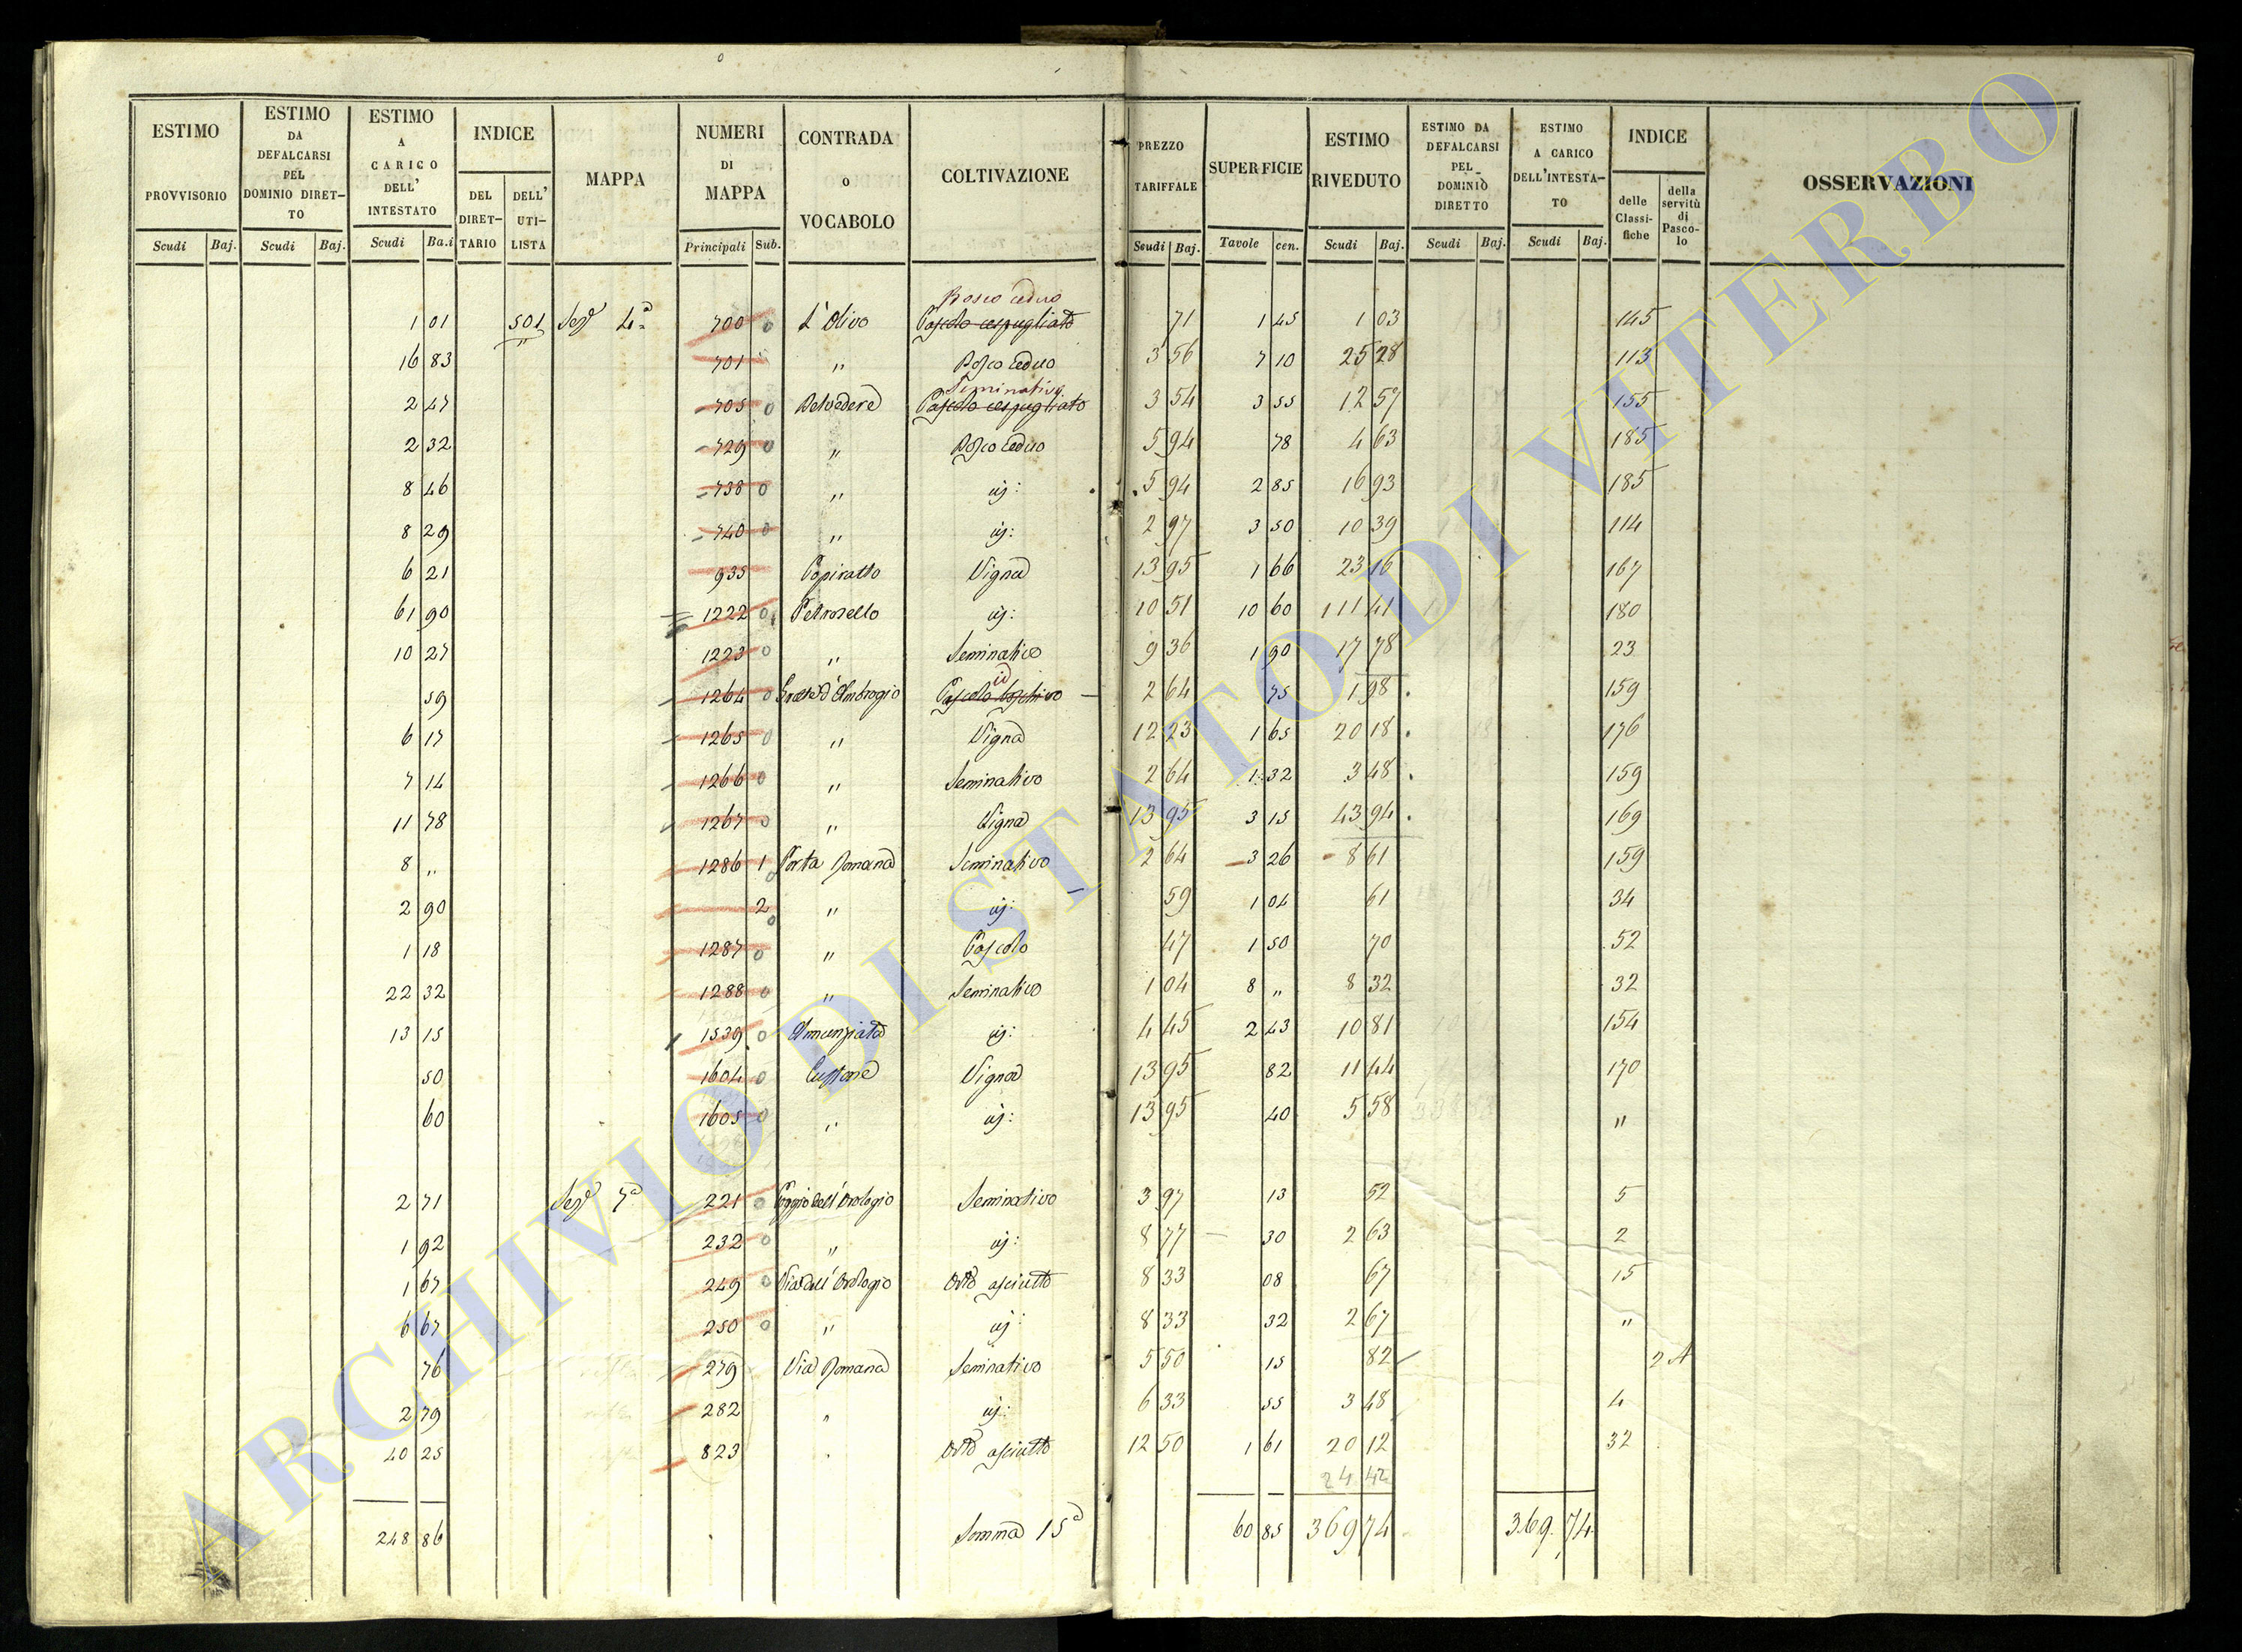 ESTIMO PROVVISORIO Scudi Baj.
ESTIMO DA DEFALCARSI PEL DOMINIO DIRET- TO Scudi Baj.
ESTIMO A CARICO DELL' INTESTATO Scudi Ba.i
INDICE DEL DIRET- TARIO DELL' UTI- LISTA
MAPPA
NUMERI DI MAPPA Principali Sub.
CONTRADA o VOCABOLO
COLTIVAZIONE
PREZZO TARIFFALE Scudi Baj.
SUPERFICIE Tavole cen.
ESTIMO RIVEDUTO Scudi Baj.
ESTIMO DA DEFALCARSI PEL DOMINIO DIRETTO Scudi Baj.
ESTIMO A CARICO DELL'INTESTA- TO Scudi Baj.
INDICE delle Classi- fiche della servitù di Pasco- lo
OSSERVAZIONI
Bosco ceduo
1 01 501 Sezе 4a 700 0 L'Olivo Pascolo cespugliato 71 1 45 1 03 145
16 83 " 701 " Bosco ceduo 3 56 7 10 25 28 113
Seminativo
2 47 705 0 Belvedere Pascolo cespugliato 3 54 3 55 12 57 155
2 32 729 0 " Bosco ceduo 5 94 78 4 63 185
8 46 738 0 " id: 5 94 2 85 16 93 185
8 29 740 0 " id: 2 97 3 50 10 39 114
6 21 935 Vigna 13 95 1 66 23 16 167
61 90 1222 0 Petrosello id: 10 51 10 60 111 41 180
10 27 1223 0 " Seminativo 9 36 1 90 17 78 23
id
59 1264 0 d'Ambrogio Pascolo boschivo 2 64 75 1 98 159
6 17 1265 0 " Vigna 12 23 1 65 20 18 176
7 14 1266 0 " Seminativo 2 64 1 32 3 48 159
11 78 1267 0 " Vigna 13 95 3 15 43 94 169
8 " 1286 1 0 Porta Romana Seminativo 2 64 3 26 8 61 159
2 90 2 0 " id: 59 1 04 61 34
1 18 1287 0 " Pascolo 47 1 50 70 52
22 32 1288 0 " Seminativo 1 04 8 " 8 32 32
13 15 1539 0 Annunziata id: 4 45 2 43 10 81 154
50 1604 0 Vigna 13 95 82 11 44 170
60 1605 0 " id: 13 95 40 5 58 "
2 71 Seze 7a 221 0 Poggio dell'Orologio Seminativo 3 97 13 52 5
1 92 232 0 " id: 8 77 30 2 63 2
1 67 249 0 Via dell'Orologio Orto asciutto 8 33 08 67 15
6 67 250 0 " id: 8 33 32 2 67 "
76 279 Via Romana Seminativo 5 50 15 82 2 A
2 79 282 " id: 6 33 55 3 48 4
40 25 823 Orto asciutto 12 50 1 61 20 12 32
24 42
248 86 Somma 15a 60 85 369 74 369 74
ARCHIVIO DI STATO DI VITERBO